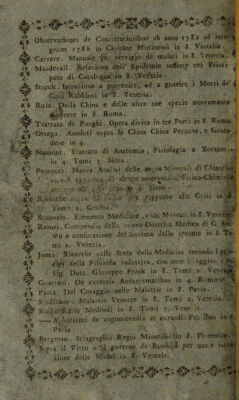 Observationes de Constitutionibus ab anno 1782 ad inte-
grum 1786 in Civitate Mutinensi in 8. Vastalla.
Carrere. Manuale per servigio de malati in 8. Venezia.
Masdevall. Relazione dell' Epidemie sofferte nel Princi-
pato di Catalogna in 8. Venezia.
Starck. Istruzione a preservare, ed a guarire i Morsi de'
Cani Rabbiosi in 8. Venezia.
Ruiz. Della China e delle altre sue spezie nuovamente
scoperte in 8. Roma.
Trattato de Funghi. Opera divisa in tre Parti in 8. Roma.
Ortega. Aneddoti sopra la China China Peruana, e
in 4.
Nannoni. Trattato di Anatomia, Fisiologia e Zootomia
in 4. Tomi 3. Siena
Petrucci. Nuova Analisi delle acque Minerali di Chianciano
Fisico-Chimich
in 4. Siena
Ricerche sopra per rapporto alle Crisi in 8.
Tomi 2. Genova.
Brunonis. Elementa Medicinæ, cum Moscati in 8. Venezia
Rasori. Compendio della nuova Dottrina Medica di G. Bro-
wn e confutazione del Sistema dello spasmo in 8. To-
mi 2. Venezia.
Jones. Ricerche sullo Stato della Medicina secondo i prin-
cipj della Filosofia induttiva, con note e aggiunte del
Sig. Dott. Giuseppe Frank in 8. Tomi 2. Venezia
Guattani. De externis Aneurysmatibus in 4. Romæ
Pasta. Del Coraggio nelle Malattie in 8. Parma
Malattie Veneree in 8. Tomi 2. Venezia
Ratio Medendi in 8. Tomi 7. Venezia
de cognoscendis et curandis Febribus in 8.
Pavia
Bergman. Sciagraphia Regni Mineralis in 8. Florentiæ
Sopra il Vitto e il governo de Bambini per uso e istru-
zione delle Madri in 8. Venezia.